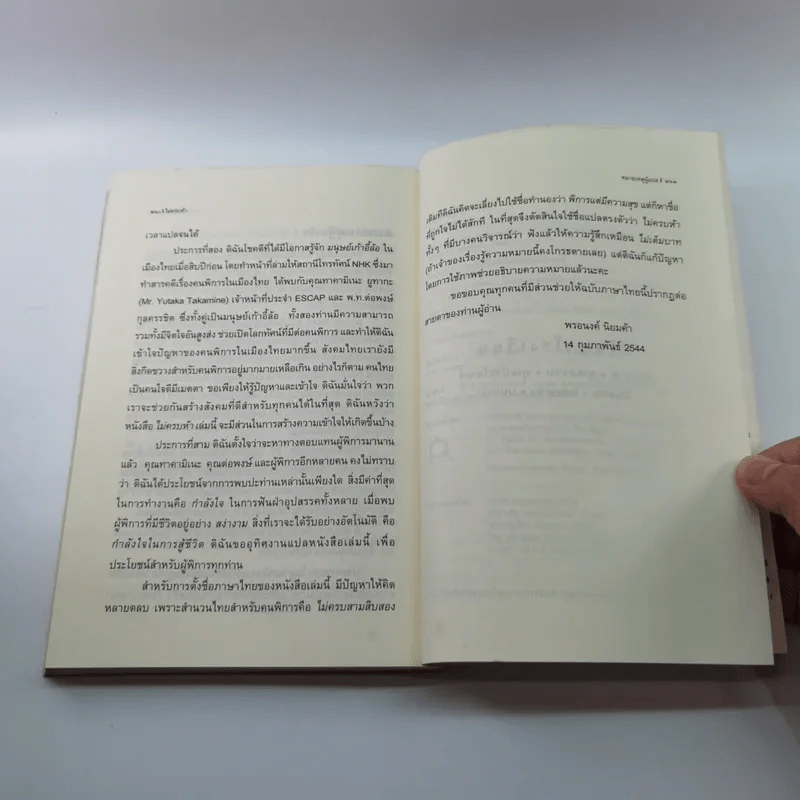 ๒๖๐ ไม่ครบห้า
เวลาแปลจนได้
ประการที่สอง ดิฉันโชคดีที่ได้มีโอกาสรู้จัก มนุษย์เก้าอี้ล้อ ใน
เมืองไทยเมื่อสิบปีก่อน โดยทำหน้าที่ล่ามให้สถานีโทรทัศน์ NHK ซึ่งมา
ทำสารคดีเรื่องคนพิการในเมืองไทย ได้พบกับคุณทาคามิเนะ ยูทากะ
(Mr. Yutaka Takamine) เจ้าหน้าที่ประจำ ESCAP และ พ.ท.ต่อพงษ์
กุลครรชิต ซึ่งทั้งคู่เป็นมนุษย์เก้าอี้ล้อ ทั้งสองท่านมีความสามารถ
รวมทั้งมีจิตใจอันสูงส่ง ช่วยเปิดโลกทัศน์ที่มีต่อคนพิการ และทำให้ดิฉัน
เข้าใจปัญหาของคนพิการในเมืองไทยมากขึ้น สังคมไทยเรายังมี
สิ่งกีดขวางสำหรับคนพิการอยู่มากมายเหลือเกิน อย่างไรก็ตาม คนไทย
เป็นคนใจดีมีเมตตา ขอเพียงให้รู้ปัญหาและเข้าใจ ดิฉันมั่นใจว่า พวก
เราจะช่วยกันสร้างสังคมที่ดีสำหรับทุกคนได้ในที่สุด ดิฉันหวังว่า
หนังสือ ไม่ครบห้า เล่มนี้ จะมีส่วนในการสร้างความเข้าใจให้เกิดขึ้นบ้าง
ประการที่สาม ดิฉันตั้งใจว่าจะหาทางตอบแทนผู้พิการมานาน
แล้ว คุณทาคามิเนะ คุณต่อพงษ์ และผู้พิการอีกหลายคน คงไม่ทราบ
ว่า ดิฉันได้ประโยชน์จากการพบปะท่านเหล่านั้นเพียงใด สิ่งมีค่าที่สุด
ในการทำงานคือ กำลังใจ ในการฟันฝ่าอุปสรรคทั้งหลาย เมื่อพบ
ผู้พิการที่มีชีวิตอยู่อย่าง สง่างาม สิ่งที่เราจะได้รับอย่างอัตโนมัติ คือ
กำลังใจในการสู้ชีวิต ดิฉันขออุทิศงานแปลหนังสือเล่มนี้ เพื่อ
ประโยชน์สำหรับผู้พิการทุกท่าน
สำหรับการตั้งชื่อภาษาไทยของหนังสือเล่มนี้ มีปัญหาให้คิด
หลายตลบ เพราะสำนวนไทยสำหรับคนพิการคือ ไม่ครบสามสิบสอง
หมายเหตุผู้แปล ๒๖๑
เดิมทีดิฉันคิดจะเลี่ยงไปใช้ชื่อทำนองว่า พิการแต่มีความสุข แต่ก็หาชื่อ
ที่ถูกใจไม่ได้สักที ในที่สุดจึงตัดสินใจใช้ชื่อแปลตรงตัวว่า ไม่ครบห้า
ทั้งๆ ที่มีบางคนวิจารณ์ว่า ฟังแล้วให้ความรู้สึกเหมือน ไม่เต็มบาท
(ถ้าเจ้าของเรื่องรู้ความหมายนี้คงโกรธตายเลย) แต่ดิฉันก็แก้ปัญหา
โดยการใช้ภาพช่วยอธิบายความหมายแล้วนะคะ
ขอขอบคุณทุกคนที่มีส่วนช่วยให้ฉบับภาษาไทยนี้ปรากฏต่อ
สายตาของท่านผู้อ่าน
พรอนงค์ นิยมค้า
14 กุมภาพันธ์ 2544